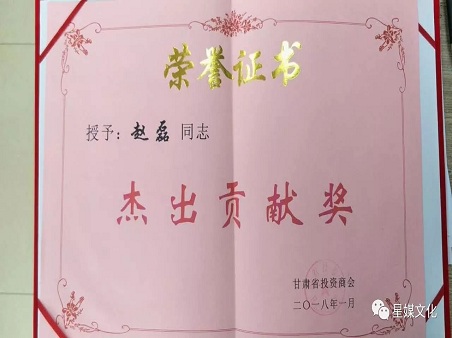 荣誉证书
授予：赵磊 同志
杰出贡献奖
甘肃省投资商会
二〇一八年一月
星媒文化